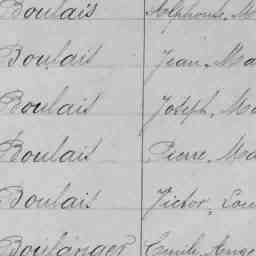 Boulais Alphonse, M
Boulais Jean, Ma
Boulais Joseph, Ma
Boulais Pierre, Ma
Boulais Victor, Lou
Boulanger Emile, Ange